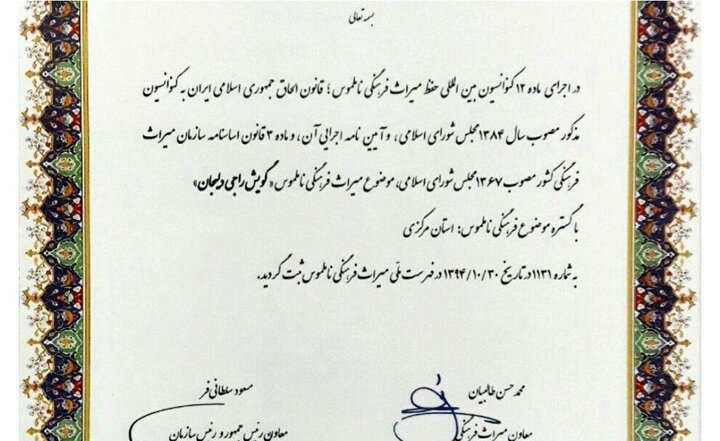 بسمه تعالی
در اجرای ماده ۱۲ کنوانسیون بین المللی حفظ میراث فرهنگی ناملموس؛ قانون الحاق جمهوری اسلامی ایران به کنوانسیون
مذکور مصوب سال ۱۳۸۴ مجلس شورای اسلامی، و آیین نامه اجرایی آن، و ماده ۳ قانون اساسنامه سازمان میراث
فرهنگی کشور مصوب ۱۳۶۷ مجلس شورای اسلامی، موضوع میراث فرهنگی ناملموس «گویش راجی دلیجان»
با گستره موضوع فرهنگی ناملموس: استان مرکزی
به شماره ۱۱۳۱ در تاریخ ۱۳۹۴/۱۰/۳۰ در فهرست ملّی میراث فرهنگی ناملموس ثبت گردید.
محمد حسن طالبیان
معاون میراث فرهنگی
مسعود سلطانی فر
معاون رئیس جمهور و رئیس سازمان